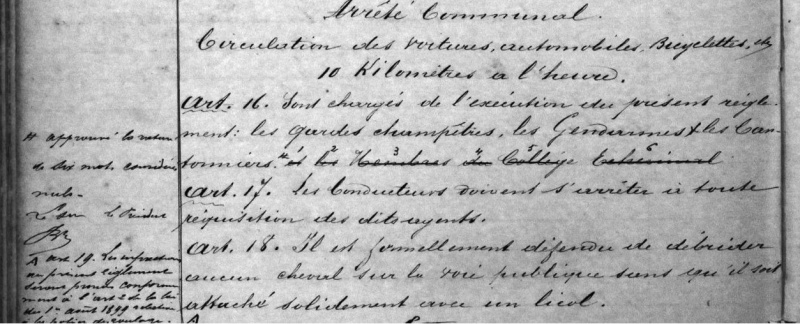 Arrêté Communal.
Circulation des voitures, automobiles, Bicyclettes, etc
10 Kilomètres à l'heure.
art. 16. Sont chargés de l'exécution du présent règle-
ment: les gardes champêtres, les Gendarmes & les Can-
tonniers. et les Membres du Collège Echevinal
art. 17. Les Conducteurs doivent s'arrêter à toute
réquisition des dits agents.
art. 18. Il est formellement défendu de débrider
aucun cheval sur la voie publique sans qu'il soit
attaché solidement avec un licol.
# approuvé la rature
de six mots considérés
nuls.
Le
A art 19. Les infractions
au présent règlement
seront punies conformé-
ment à l'art 2 de la loi
des 1er août 1899 relative
à la police du roulage.